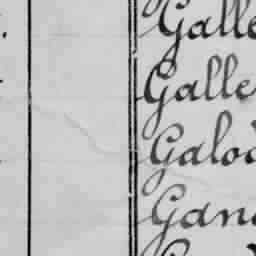 Galle
Galle
Galo
Gan